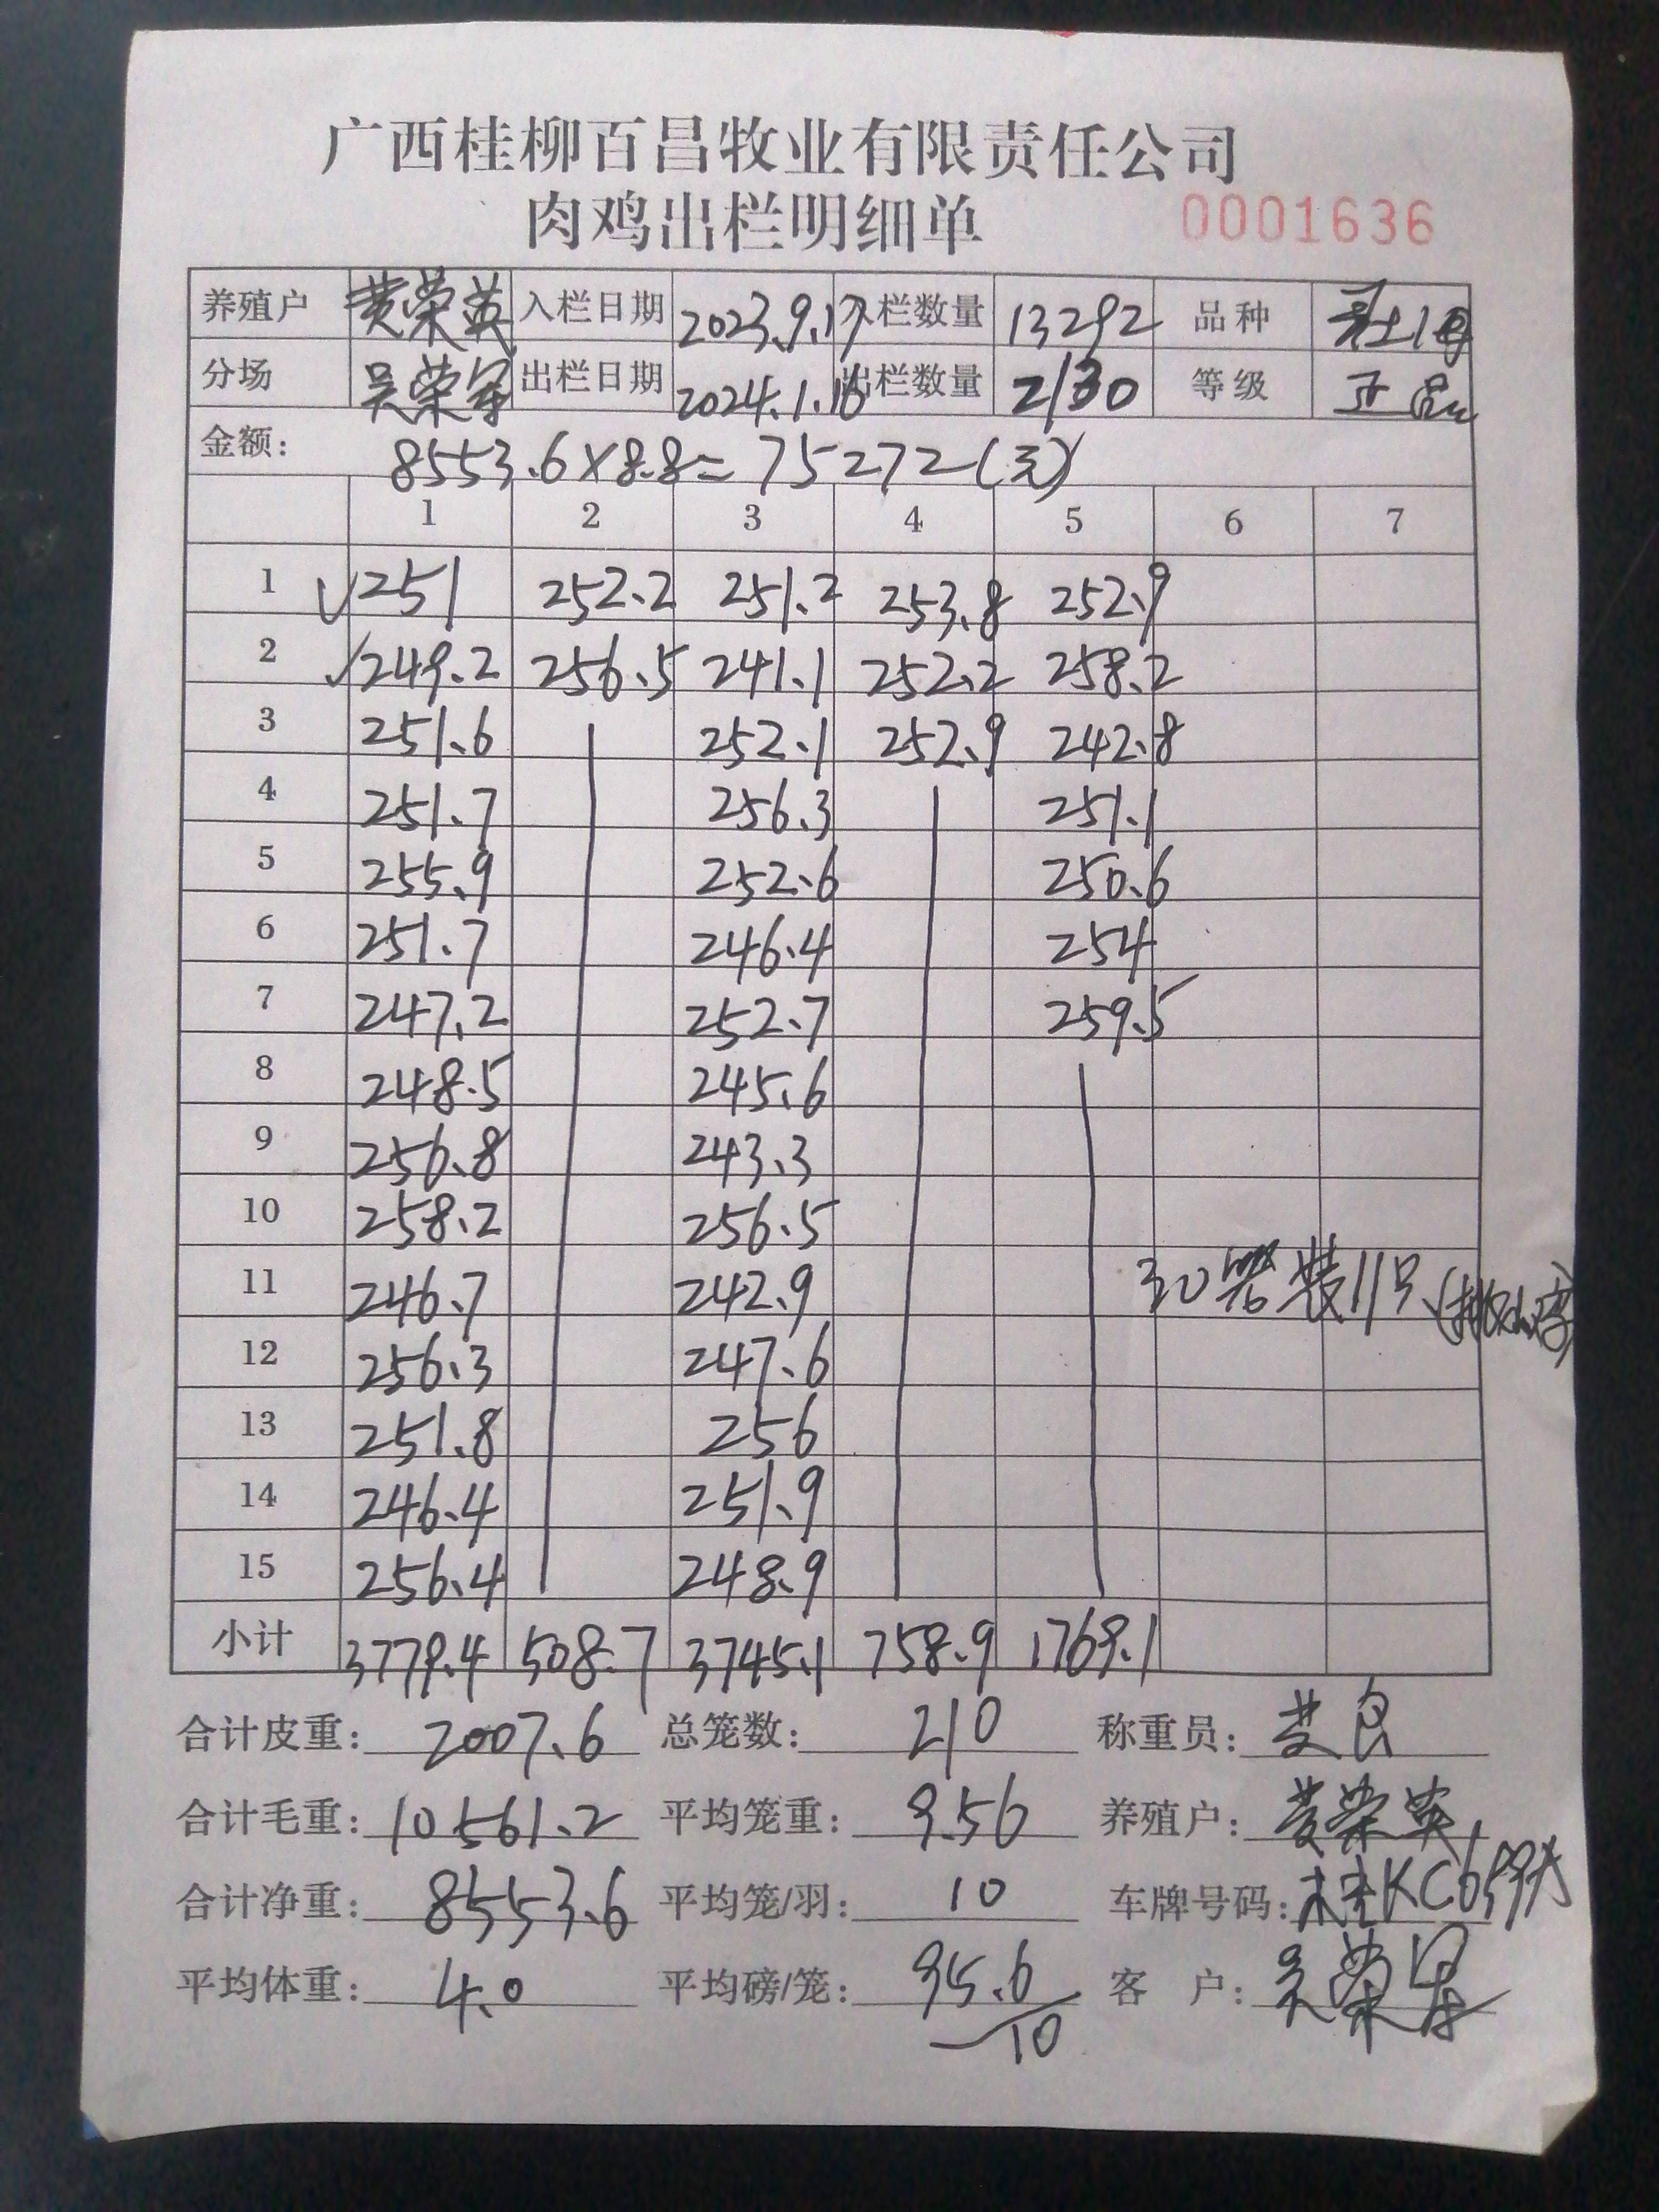 广西桂柳百昌牧业有限责任公司
肉鸡出栏明细单 0001636
养殖户 黄荣英 入栏日期 2023.9.17 入栏数量 13292 品种
分场 吴荣军 出栏日期 2024.1.16 出栏数量 2130 等级 正品
金额: 8553.6×8.8=75272(元)
1 2 3 4 5 6 7
1 √251 252.2 251.2 253.8 252.9
2 √249.2 256.5 241.1 252.2 258.2
3 251.6 252.1 252.9 242.8
4 251.7 256.3 251.1
5 255.9 252.6 250.6
6 251.7 246.4 254
7 247.2 252.7 259.5
8 248.5 245.6
9 256.8 243.3
10 258.2 256.5
11 246.7 242.9 30笼装11只
12 256.3 247.6
13 251.8 256
14 246.4 251.9
15 256.4 248.9
小计 3779.4 508.7 3745.1 758.9 1769.1
合计皮重: 2007.6 总笼数: 210 称重员:
合计毛重: 10561.2 平均笼重: 9.56 养殖户: 黄荣英
合计净重: 8553.6 平均笼/羽: 10 车牌号码:
平均体重: 4.0 平均磅/笼: 95.6/10 客 户: 吴荣军